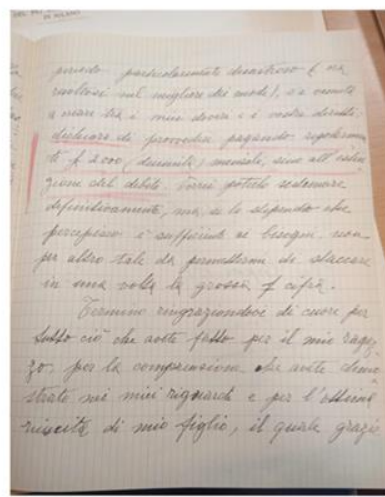 DI MILANO
periodo particolarmente disastroso (ora
risoltosi nel migliore dei modi), si è venuta
a creare tra i miei doveri e i vostri diritti:
dichiaro di provvedere pagando regolarmen
te £ 2000 (duemila) mensili, sino all'estin
zione del debito. Vorrei poterlo
definitivamente, ma se lo stipendio che
percepisco è sufficiente ai bisogni non
per altro tale da permettermi di staccare
in una volta la grossa cifra.
Termino ringraziandoci di cuore per
tutto ciò che avete fatto per il mio ragaz
zo, per la comprensione che avete dimo
strato nei miei riguardi e per l'ottima
riuscita di mio figlio, il quale grazie